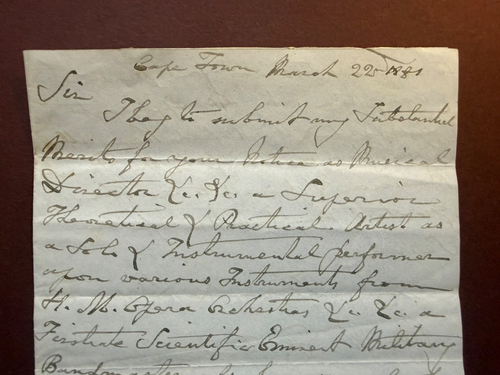 Cape Town March 22
Sir
I beg to submit my Substantial
Merits for your Notice as Musical
Director &c. &c. a Superior
Theoretical & Practical Artist as
a Solo & Instrumental performer
upon various Instruments from
H. M. Opera Orchestras &c. &c. a
Firstrate Scientific Eminent Military
Bandmaster